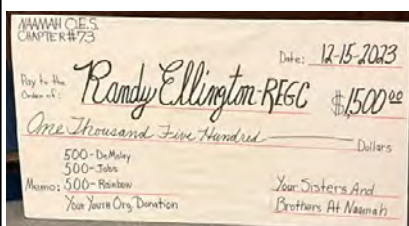 NAAMAH O.E.S.
CHAPTER #73
Date: 12-15-2023
Pay to the
Order of: Randy Ellington-REGC $1,500 00
One Thousand Five Hundred Dollars
500-DeMolay
500-Jobs
Memo: 500-Rainbow
Your Youth Org. Donation
Your Sisters And
Brothers At Naamah